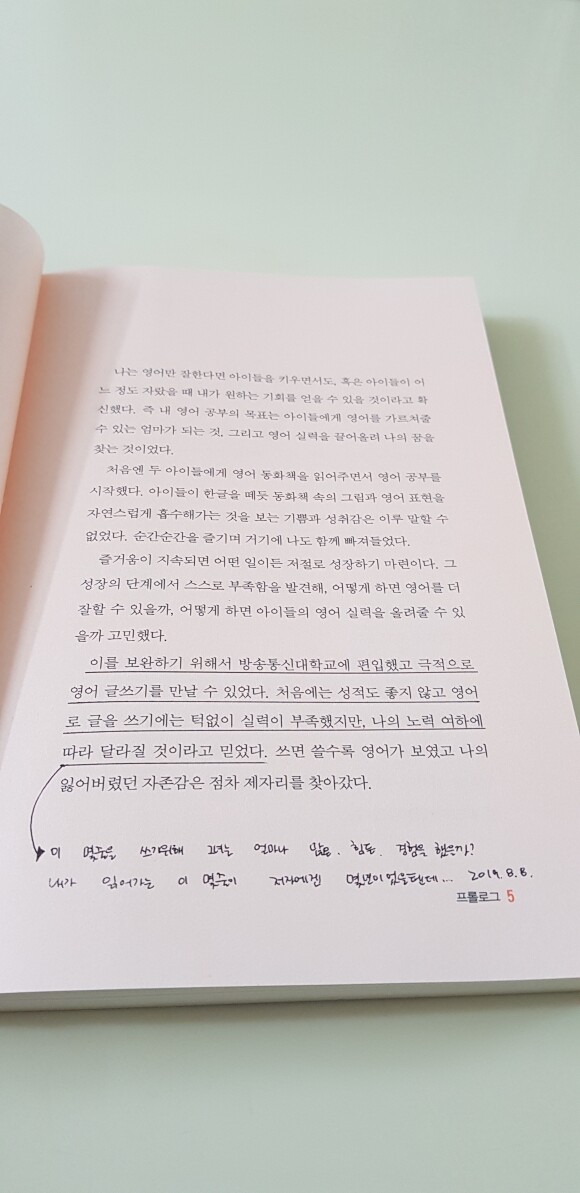 나는 영어만 잘한다면 아이들을 키우면서도, 혹은 아이들이 어
느 정도 자랐을 때 내가 원하는 기회를 얻을 수 있을 것이라고 확
신했다. 즉 내 영어 공부의 목표는 아이들에게 영어를 가르쳐줄
수 있는 엄마가 되는 것, 그리고 영어 실력을 끌어올려 나의 꿈을
찾는 것이었다.
처음엔 두 아이들에게 영어 동화책을 읽어주면서 영어 공부를
시작했다. 아이들이 한글을 떼듯 동화책 속의 그림과 영어 표현을
자연스럽게 흡수해가는 것을 보는 기쁨과 성취감은 이루 말할 수
없었다. 순간순간을 즐기며 거기에 나도 함께 빠져들었다.
즐거움이 지속되면 어떤 일이든 저절로 성장하기 마련이다. 그
성장의 단계에서 스스로 부족함을 발견해, 어떻게 하면 영어를 더
잘할 수 있을까, 어떻게 하면 아이들의 영어 실력을 올려줄 수 있
을까 고민했다.
이를 보완하기 위해서 방송통신대학교에 편입했고 극적으로
영어 글쓰기를 만날 수 있었다. 처음에는 성적도 좋지 않고 영어
로 글을 쓰기에는 턱없이 실력이 부족했지만, 나의 노력 여하에
따라 달라질 것이라고 믿었다. 쓰면 쓸수록 영어가 보였고 나의
잃어버렸던 자존감은 점차 제자리를 찾아갔다.
이 몇줄을 쓰기위해 그녀는 얼마나 많은. 힘든. 경험을 했을까?
내가 읽어가는 이 몇줄이 저자에겐 몇년이었을텐데... 2019. 8. 8.
프롤로그 5